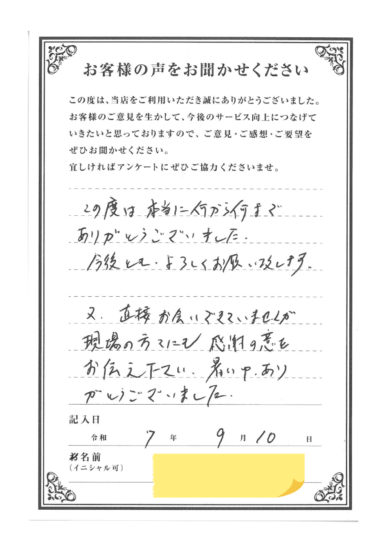 お客様の声をお聞かせください
この度は、当店をご利用いただき誠にありがとうございました。
お客様のご意見を生かして、今後のサービス向上につなげて
いきたいと思っておりますので、ご意見・ご感想・ご要望を
ぜひお聞かせください。
宜しければアンケートにぜひご協力くださいませ。
この度は本当に何から何まで
ありがとうございました.
今後とも.よろしくお願い致します。
又、直接お会いできていませんが
現場の方々にも 感謝の意を
お伝え下さい.暑い中.あり
がとうございました.
記入日
令和 7 年 9 月 10 日
お名前
(イニシャル可)